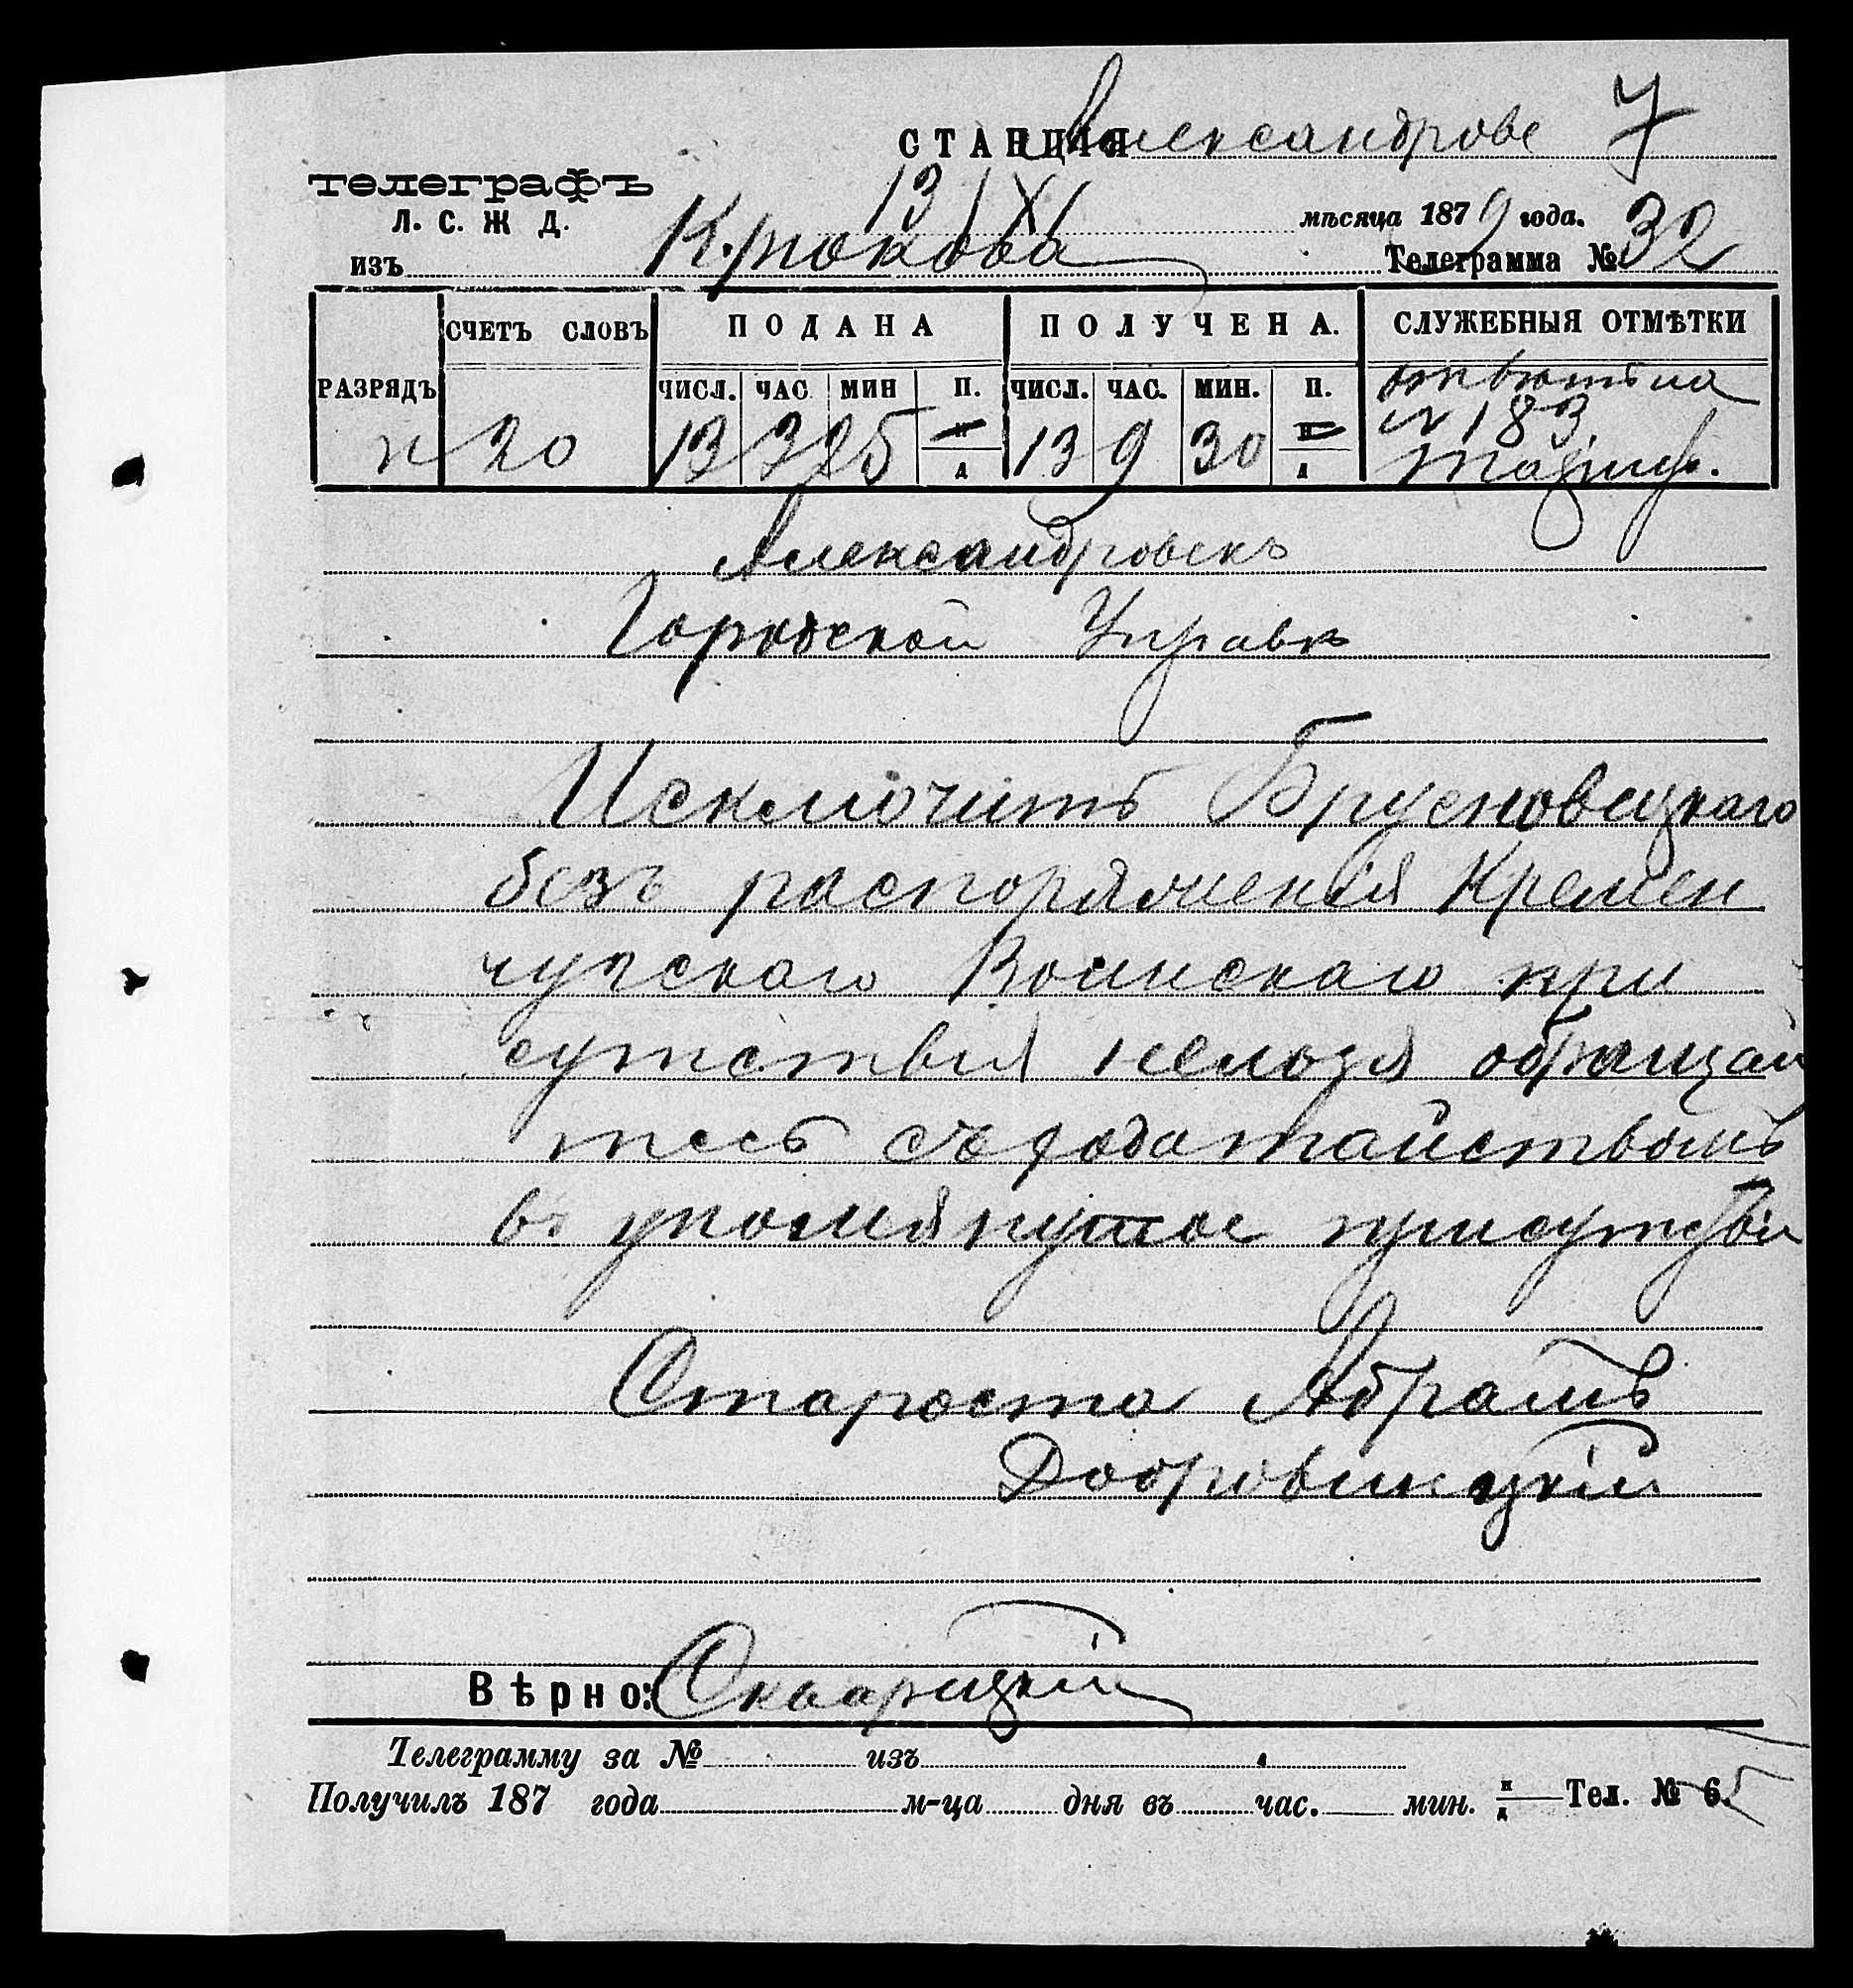 СТАНЦІЯ Александрове 7
телеграфъ
Л. С. Ж Д.
13/XI мѣсяца 1879 года.
изъ Крюкова Телеграмма № 32
РАЗРЯДЪ СЧЕТЪ СЛОВЪ ПОДАНА ПОЛУЧЕНА. СЛУЖЕБНЫЯ ОТМѢТКИ
ЧИСЛ. ЧАС МИН П. ЧИСЛ. ЧАС. МИН. П.
п 20 13 3 25 н/д 13 9 30 н/д
отвѣтъ на
№ 183
Александровскъ
Городской Управѣ
Исключить Брусновицкаго
безъ распоряженія Кремен
чугскаго Воинскаго при
сутствія нельзя обращай
тесь съ ходатайствомъ
въ упомянутое присутствіи
Староста Абрамъ
Добровицкій
Вѣрно: Скварецкій
Телеграмму за № изъ
Получилъ 187 года м-ца дня въ час. мин. н/д Тел. № 6.